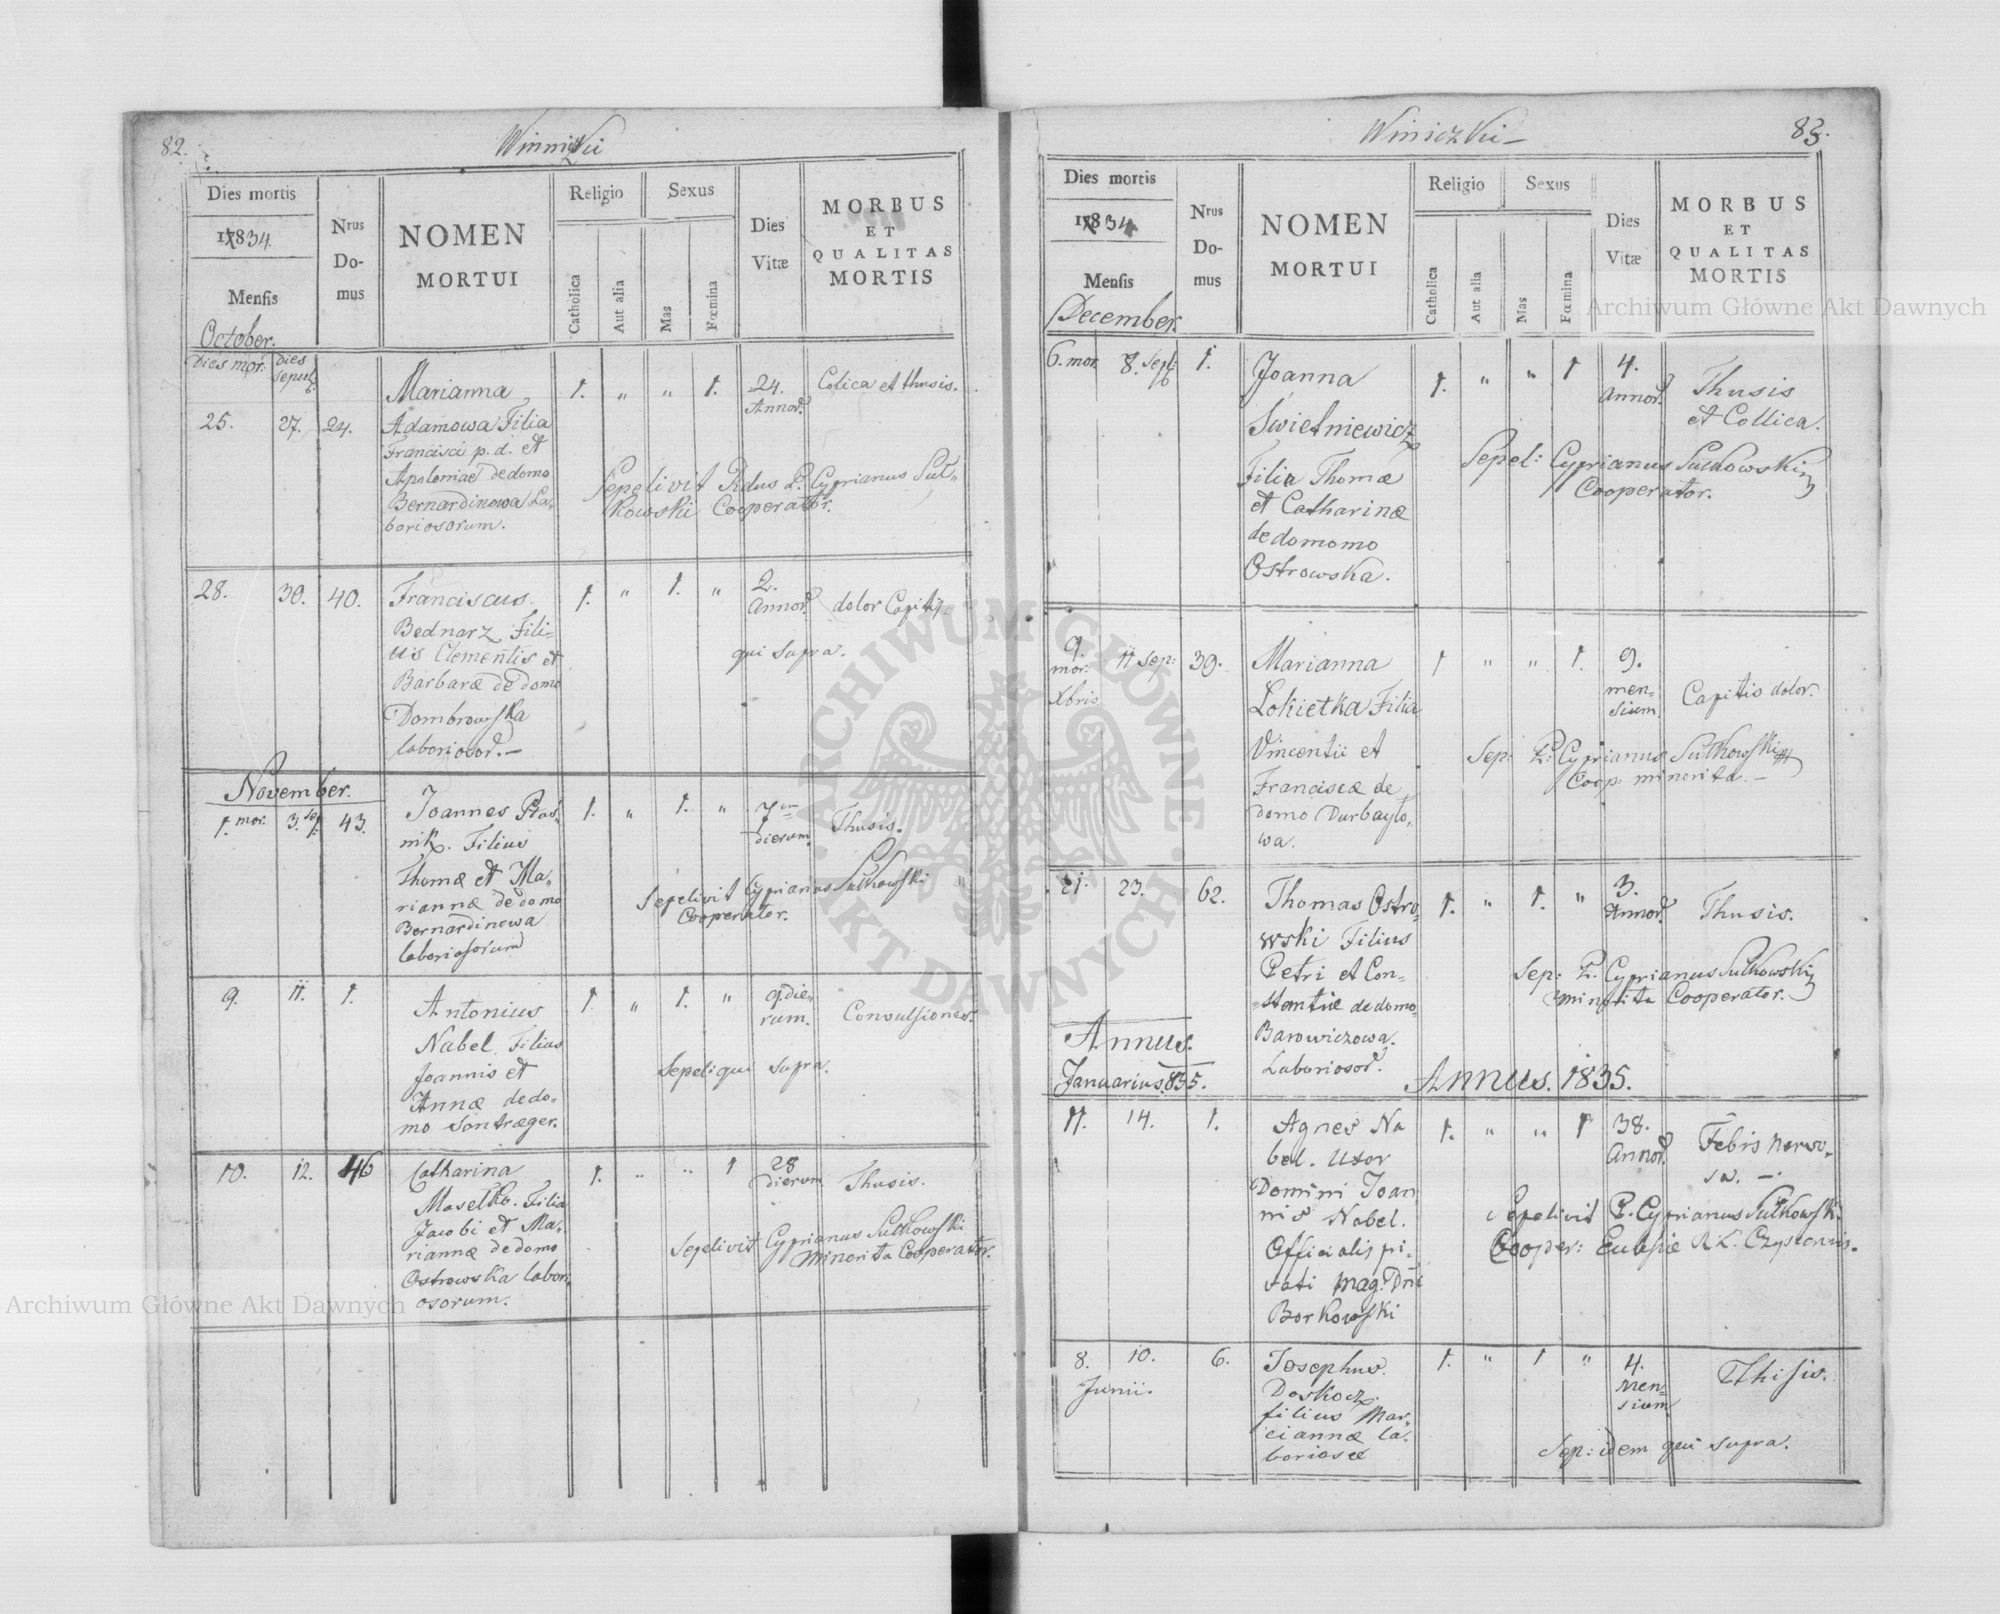 82.
Winniczki
Dies mortis
Nrus Do-mus
NOMEN MORTUI
Religio
Sexus
Dies Vitæ
MORBUS ET QUALITAS MORTIS
1834.
Mensis
October.
Catholica
Aut alia
Mas
Fœmina
Dies mor. Dies sepul:
25. 27. 24. Marianna 1. " " 1. 24. Annor. Colica et thusis.
Adamowa Filia
Francisci p. d. et
Apoloniae de domo
Bernardinowa La-
boriosorum.
Sepelivit Rdus P. Cyprianus Sul-
kowski Cooperator.
28. 30. 40. Franciscus 1. " 1. " 2. Annor. dolor Capitis
Bednarz Fili-
us Clementis et
Barbaræ de domo
Dombrowska
laboriosor.—
qui supra.
November.
1. mor. 3. sep. 43. Joannes Ptas- 1. " 1. " 7 dierum Thusis.
nik. Filius
Thomæ et Ma-
riannæ de domo
Bernardinowa
laboriosorum
Sepelivit Cyprianus Sulkowski
Cooperator.
9. 11. 1. Antonius 1. " 1. " 9 die-rum. Convulsiones.
Nabel Filius
Joannis et
Annæ de do-
mo Sontræger.
Sepeli: qui supra.
10. 12. 46 Catharina 1. " " 1 28 dierum Thusis.
Moselko. Filia
Jacobi et Ma-
riannæ de domo
Ostrowska labori-
osorum.
Sepelivit Cyprianus Sulkowski
Minorita Cooperator.
Winiczki—
83.
Dies mortis
Nrus Do-mus
NOMEN MORTUI
Religio
Sexus
Dies Vitæ
MORBUS ET QUALITAS MORTIS
1834
Mensis
December.
Catholica
Aut alia
Mas
Fœmina
6. mor. 8. sepl: 1. Joanna 1. " " 1 4. Annor. Thusis
et Collica.
Swietniewicz
Filia Thomæ
et Catharinæ
de domomo
Ostrowska.
Sepel: Cyprianus Sulkowski
Cooperator.
9. mor. Xbris 11 sep: 39. Marianna 1 " " 1. 9. men-sium. Capitis dolor.
Lokietka Filia
Vincentii et
Franciscæ de
domo Durbaylo-
wa.
Sep: P: Cyprianus Sulkowski
Coop. minorita.—
21. 23. 62. Thomas Ostro- 1. " 1. " 3. Annor. Thusis.
wski Filius
Petri et Con-
stantiæ de domo
Barowiczowa.
Laboriosor.
Sep: P. Cyprianus Sulkowski
minorita Cooperator.
Annus.
Januarius 835.
Annus. 1835.
11. 14. 1. Agnes Na 1. " " 1 38. Annor. Febis nervo-
sa.—
bel. Uxor
Domini Joan
nis Nabel.
Officialis pi-
vati Mag. Dni
Borkowski
Sepelivit P. Cyprianus Sulkowski
Cooper: Eclesiæ R.L.
8. Junii. 10. 6. Josephus 1. " 1 " 4. Men-sium Thisis.
Doskocz.
filius Mar-
ciannæ la-
boriosæ
Sep: idem qui supra.
ARCHIWUM GŁÓWNE AKT DAWNYCH
Archiwum Główne Akt Dawnych
Archiwum Główne Akt Dawnych